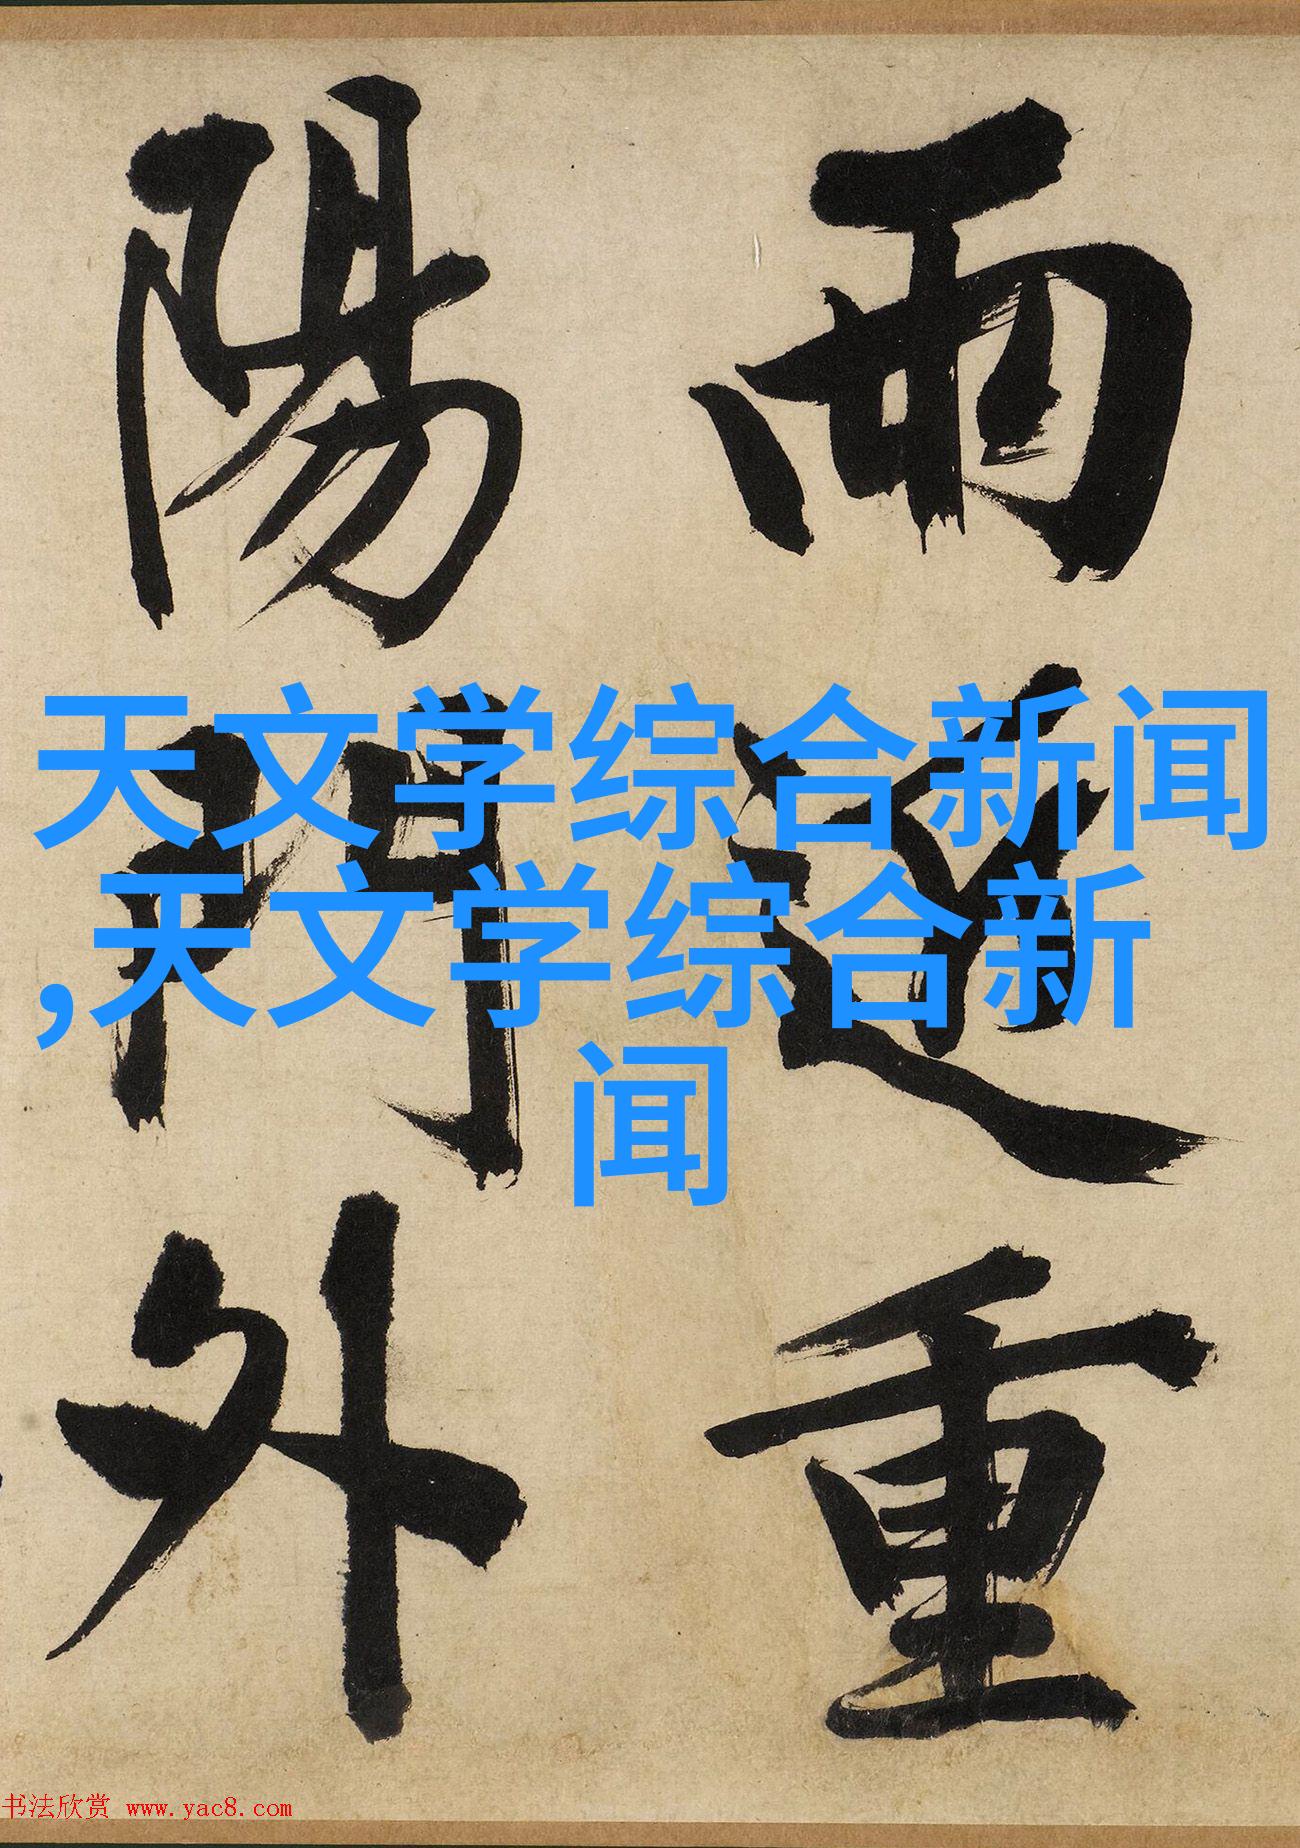 雨重
陽門外
天文学综合新闻
,天文学综合新
闻
书法欣赏 www.yac8.com